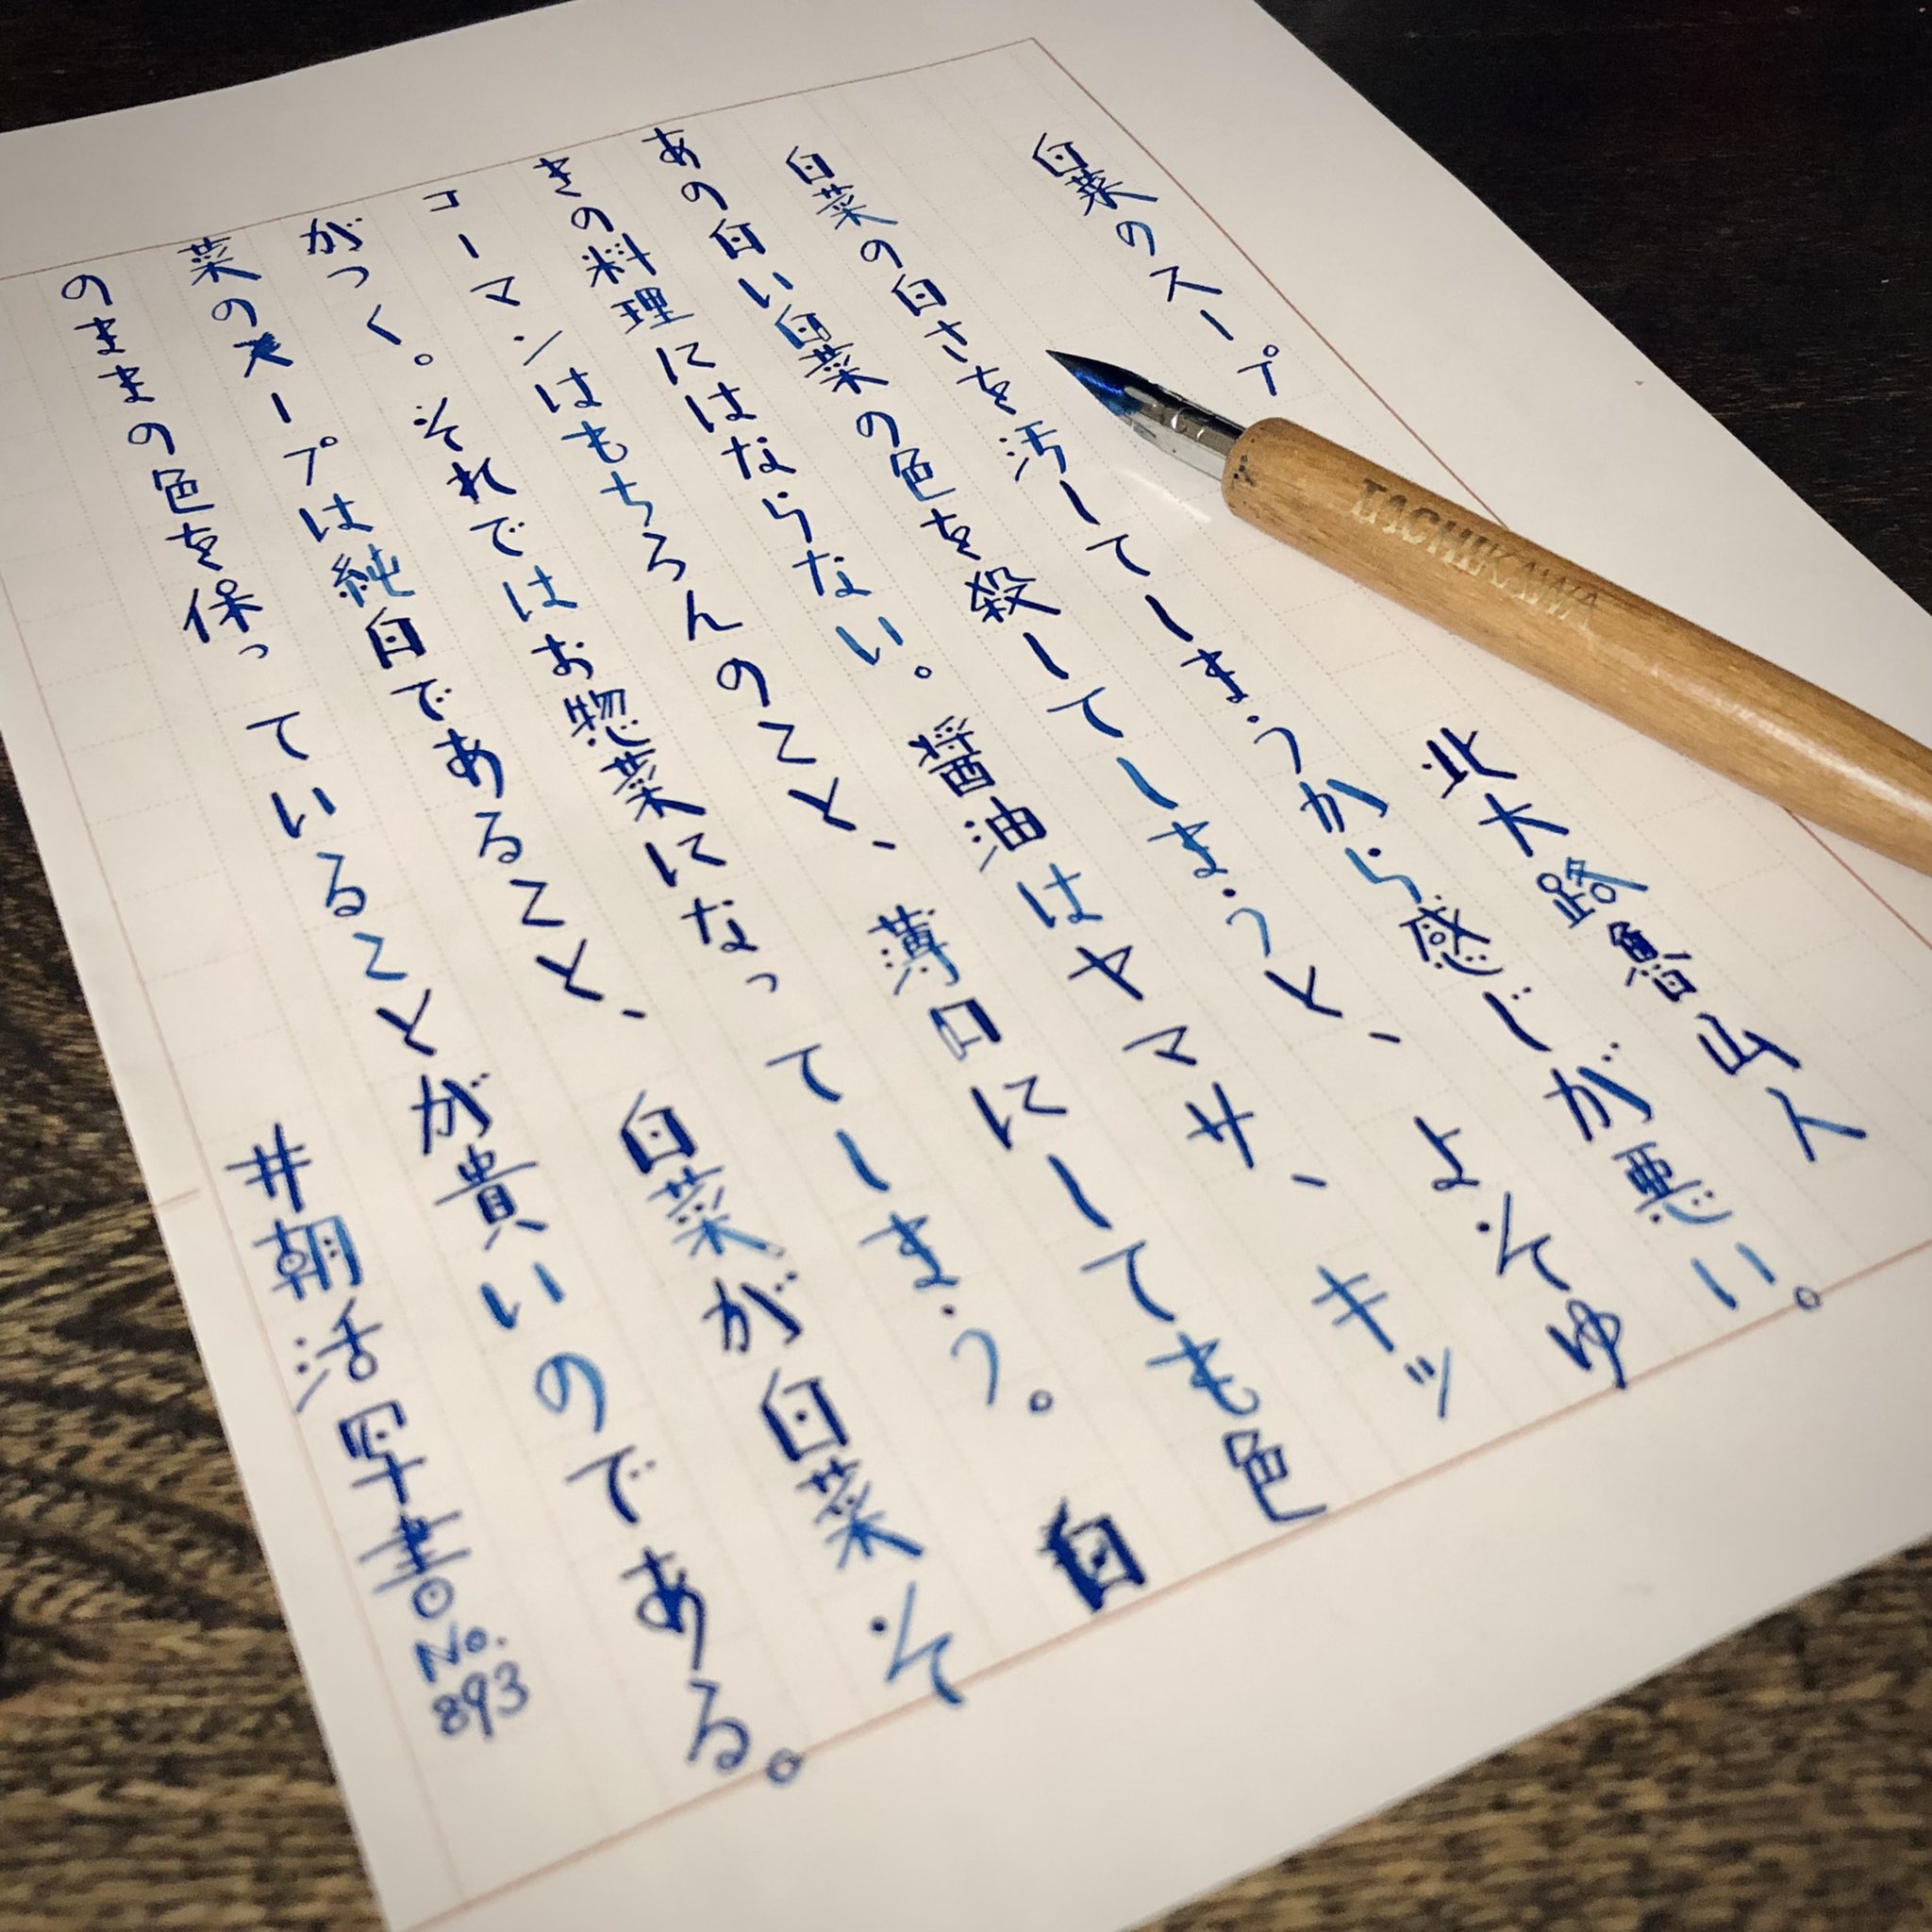 白菜のスープ
北大路魯山人
白菜の白さを汚してしまうから感じが悪い。
あの白い白菜の色を殺してしまうと、よそゆ
きの料理にはならない。醤油はヤマサ、キッ
コーマンはもちろんのこと、薄口にしても色
がつく。それではお惣菜になってしまう。白
菜のスープは純白であること、白菜が白菜そ
のままの色を保っていることが貴いのである。
#朝活写書 No.893
TACHIKAWA